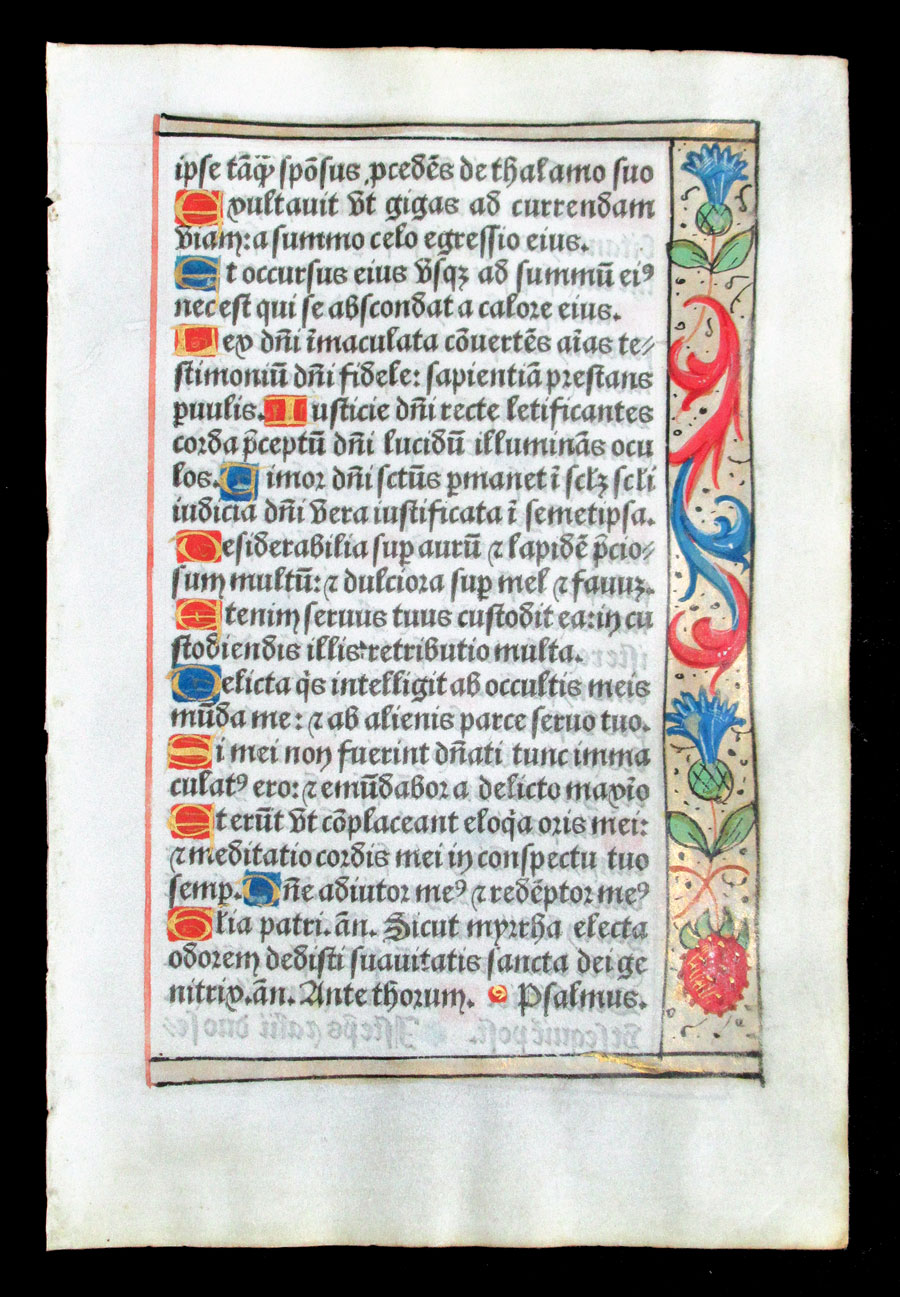 ipse tāqꝫ spōsus ꝓcedēs de thalamo suo
Exultauit vt gigas ad currendam
viam: a summo celo egressio eius.
Et occursus eius vsqꝫ ad summū eiꝰ
nec est qui se abscondat a calore eius.
Lex dñi īmaculata cōuertēs aīas te⸗
stimoniū dñi fidele: sapientiā prestans
ꝑuulis. Iusticie dñi recte letificantes
corda p̄ceptū dñi lucidū illuminās ocu
los. Timor dñi sctūs ꝑmanet ī sclꝫ scli
iudicia dñi vera iustificata ī semetipsa.
Desiderabilia suꝑ aurū ⁊ lapidē p̄cio⸗
sum multū: ⁊ dulciora suꝑ mel ⁊ fauuꝫ.
Etenim seruus tuus custodit ea: in cu
stodiendis illis retributio multa.
Delicta q̄s intelligit ab occultis meis
mūda me: ⁊ ab alienis parce seruo tuo.
Si mei non fuerint dñati tunc imma
culatꝰ ero: ⁊ emūdabor a delicto maxīo
Et erūt vt cōplaceant eloq̄a oris mei:
⁊ meditatio cordis mei in conspectu tuo
semꝑ. Dñe adiutor meꝰ ⁊ redēptor meꝰ
Glia patri. ān. Sicut myrrha electa
odorem dedisti suauitatis sancta dei ge
nitrix. ān. Ante thorum. Psalmus.